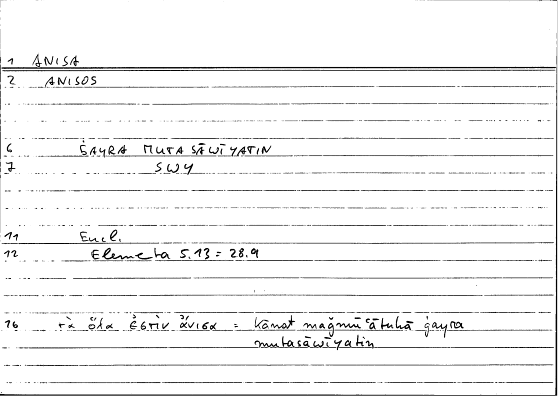 1 ANISA
2 ANISOS
6 ĠAYRA MUTASĀWĪYATIN
7 SWY
11 Eucl.
12 Elementa 5.13 = 28.9
16 τὰ ὅλα ἐστὶν ἄνισα = kānat maǧmūʿātuhā ġayra
mutasāwīyatin